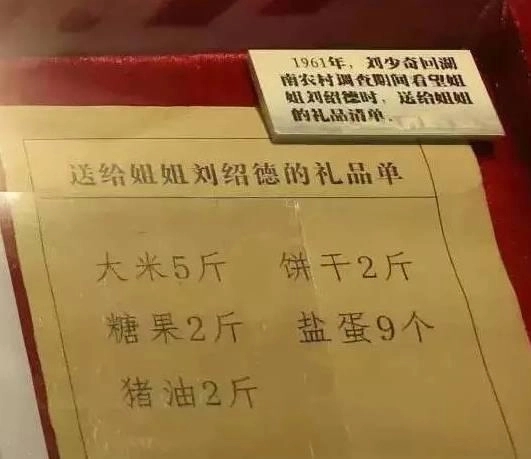 1961年，刘少奇回湖
南农村调查期间看望姐
姐刘绍德时，送给姐姐
的礼品清单.
送给姐姐刘绍德的礼品单
大米5斤 饼干2斤
糖果2斤 盐蛋9个
猪油2斤